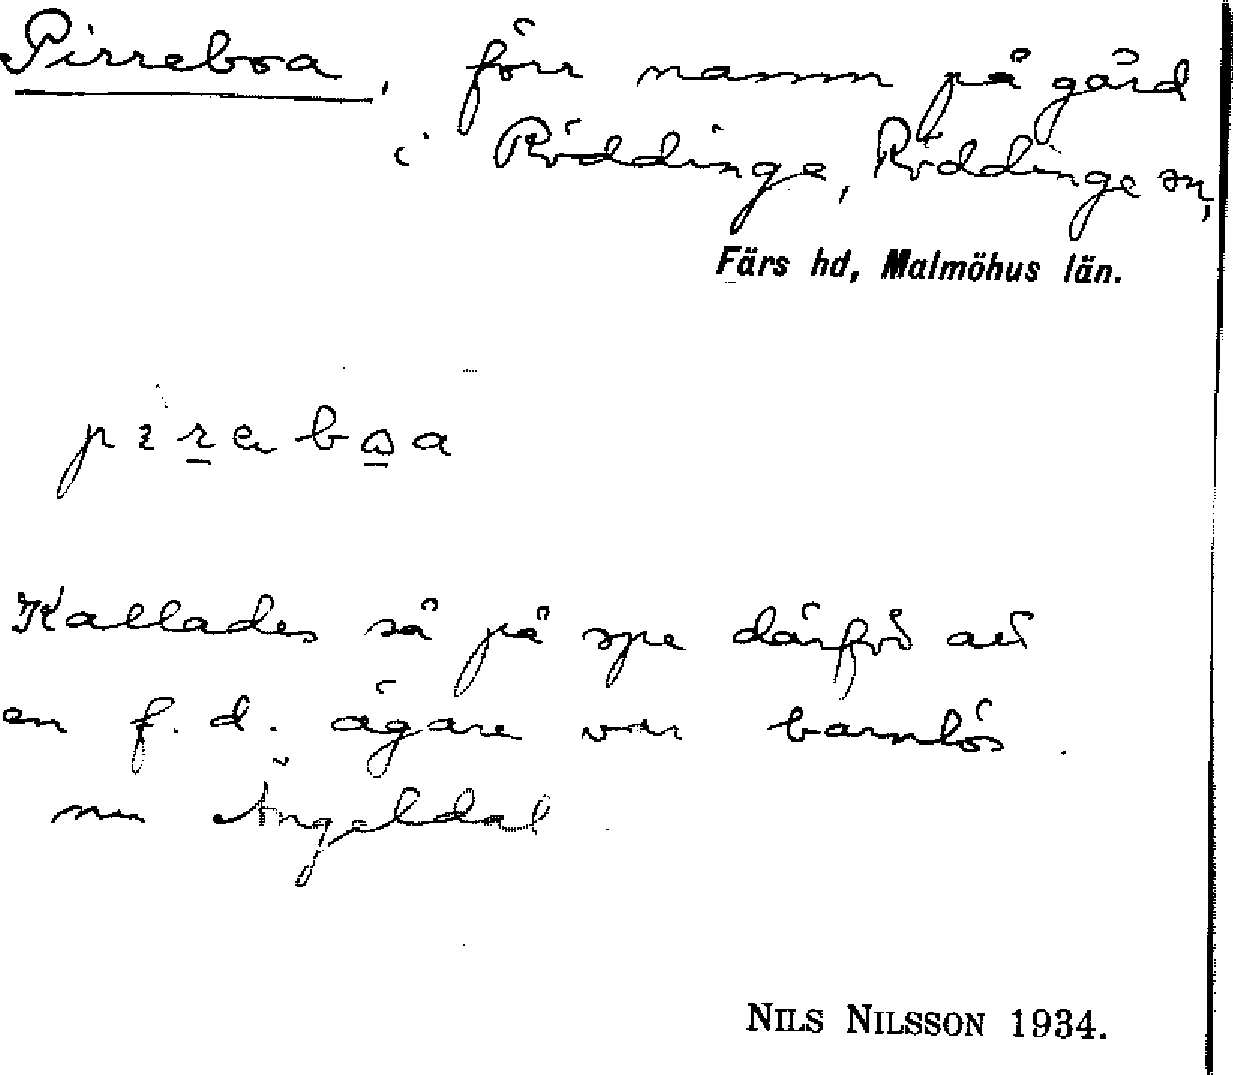 Pirreboa, förr namn på gård
i Röddinge, Röddinge sn,
Färs hd, Malmöhus län.
Kallades så på spe därför att
en f. d. ägare var barnlös.
nu Ängeldal
NILS NILSSON 1934.